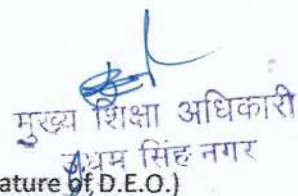 मुख्य शिक्षा अधिकारी
ऊधम सिंह नगर
ature of D.E.O.)